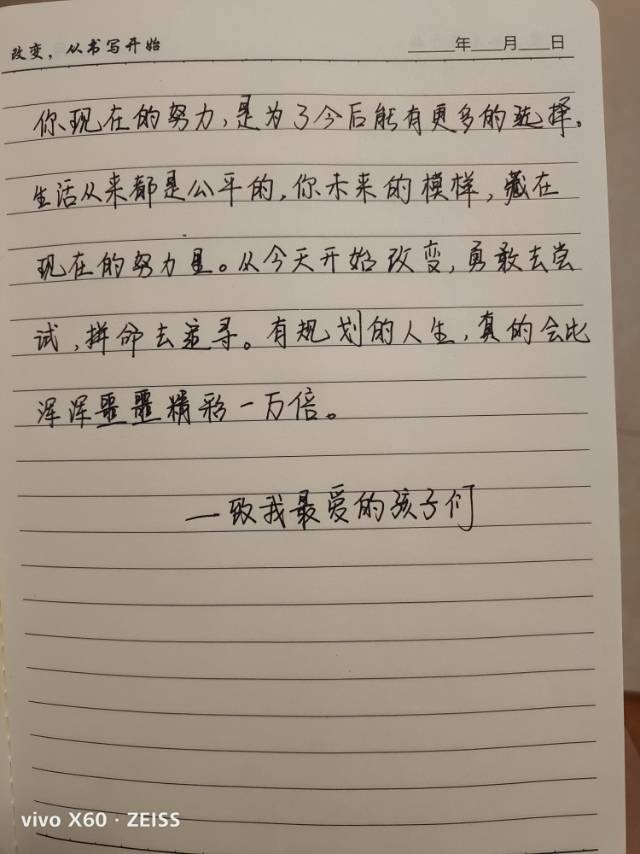 改变，从书写开始
年 月 日
你现在的努力，是为了今后能有更多的选择，
生活从来都是公平的，你未来的模样，藏在
现在的努力里。从今天开始改变，勇敢去尝
试，拼命去追寻。有规划的人生，真的会比
浑浑噩噩精彩一万倍。
—致我最爱的孩子们
vivo X60 · ZEISS